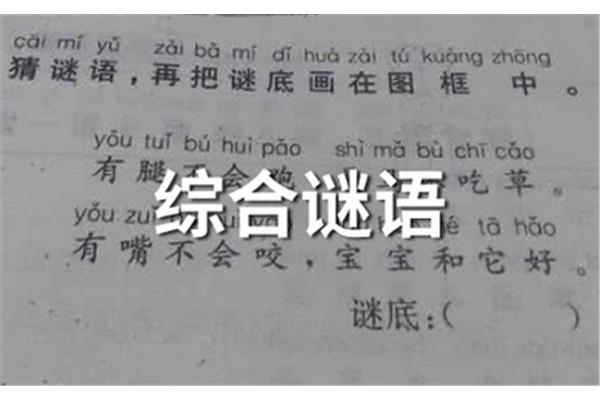 cāi mí yǔ zài bǎ mí dǐ huà zài tú kuàng zhōng
猜谜语，再把谜底画在图框中。
yǒu tuǐ bú huì pǎo shì mǎ bù chī cǎo
有腿不会 吃草。
综合谜语
yǒu tā hǎo
有嘴不会咬，宝宝和它好。
谜底:( )